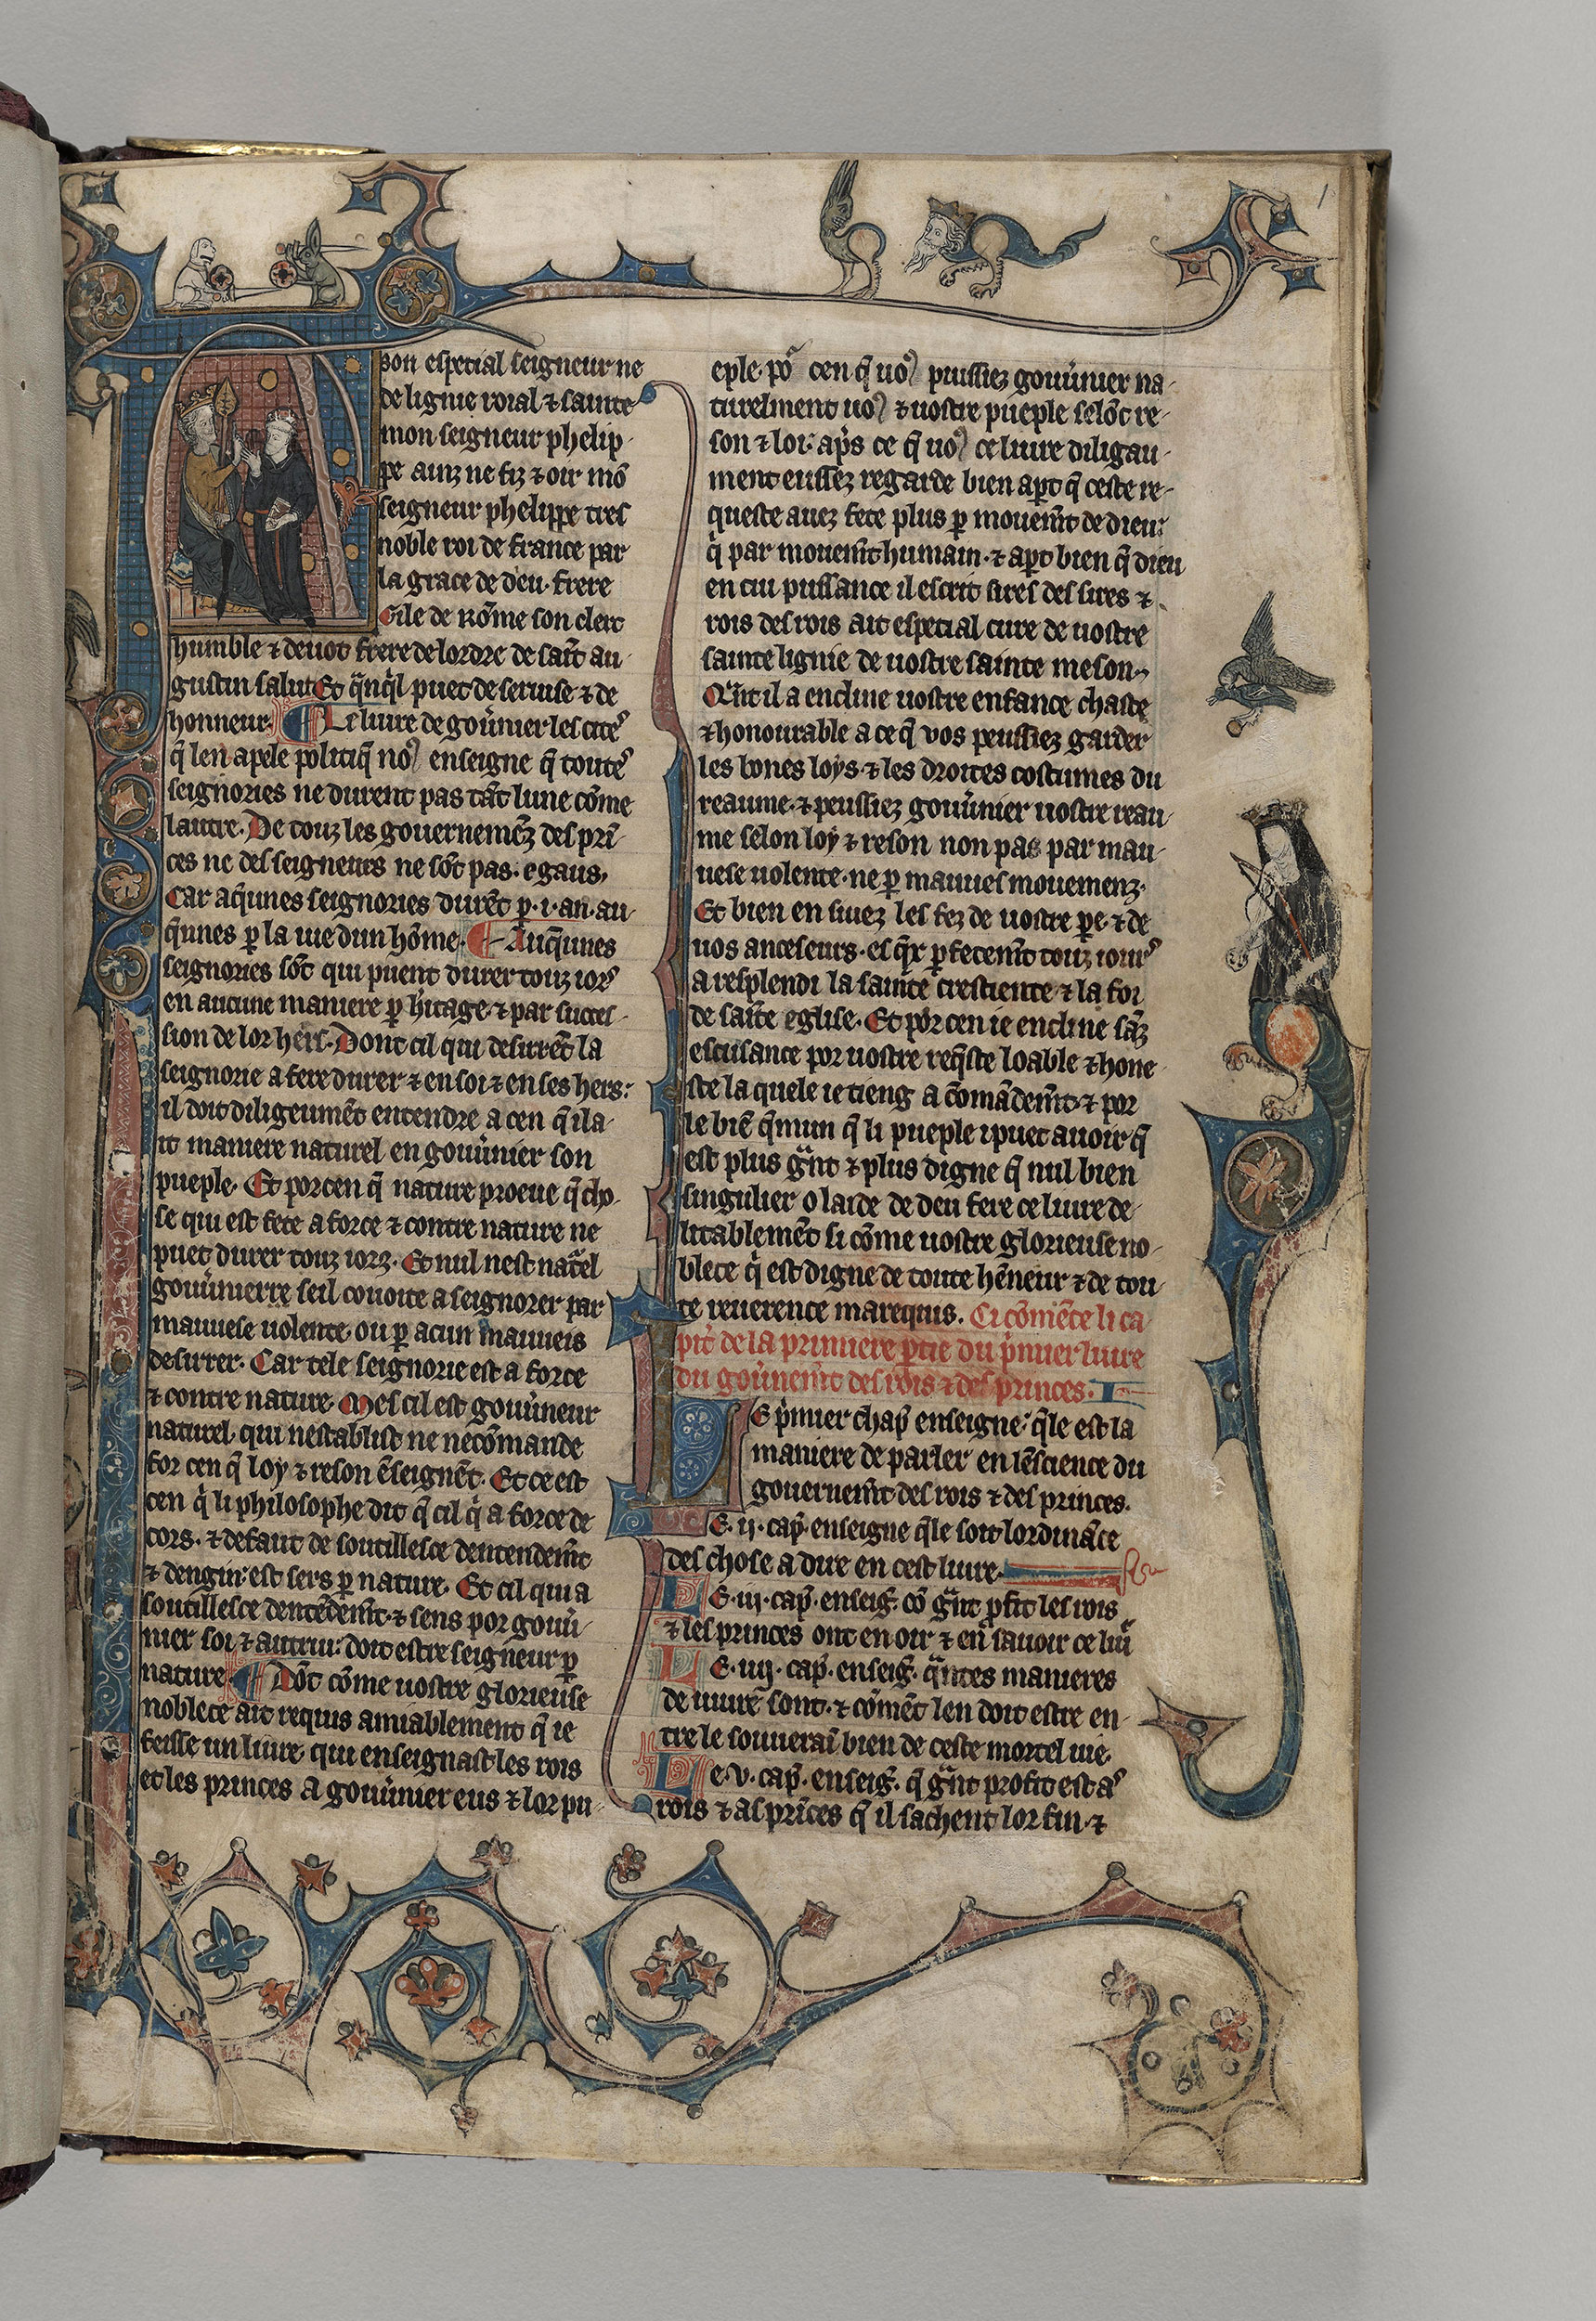 A son especial seigneur ne
de lignie roial ⁊ sainte
mon seigneur phelip-
pe ainz ne fiz ⁊ oir mō
seigneur phelippe tres
noble roi de france par
la grace de deu. frere
Gile de Rōme son clerc
humble ⁊ devot frere de lordre de saīt au-
gustin salut Et q̄nq̄l puet de servise ⁊ de
honneur. ¶ Le livre de gov̾nier les cite᷒
q̄ len apele politiq̄ noꝰ enseigne q̄ toute᷒
seignories ne durent pas tāt lune cōme
lautre. De touz les gouvernemēz des prī-
ces ne des seigneurs ne sōt pas. egaus.
Car aq̄unes seignories durēt ꝑ .i. an. au-
q̄unes ꝑ la vie dun hōme. ¶ Auq̄unes
seignories sōt qui puent durer touz iors
en aucune maniere ꝑ hitage. ⁊ par succes-
sion de lor hers. Dont cil qui desirēt la
seignorie a fere durer ⁊ en soi ⁊ en ses hers:
il doit diligeumēt entendre a cen q̄ il a-
it maniere naturel en gouv̾nier son
pueple. Et por cen q̄ nature proeue q̄ cho-
se qui est fete a force ⁊ contre nature ne
puet durer touz iorz. Et nul nest natel
gouv̾nierre seil covoite a seignorer par
mauvese volente. ou ꝑ acun mauveis
desirer. Car tele seignorie est a force
⁊ contre nature. Mes cil est gouv̾neur
naturel. qui nestablist ne ne cōmande
for cen q̄ loy ⁊ reson ēseignēt. Et ce est
cen q̄ li philosophe dit q̄ cil q̄ a force de
cors. ⁊ defaut de soutillesce dentendem̄t
⁊ dengin: est sers ꝑ nature. Et cil qui a
soutillesce dentēdem̄t. ⁊ sens por gouv̾-
nier soi ⁊ autrui: doit estre seigneur ꝑ
nature ¶ Dōt cōme vostre glorieuse
noblece ait requis amiablement q̄ ie
feisse un livre. qui enseignast les rois
et les princes a gouv̾nier eus ⁊ lor pu-
eple. poʳ cen q̄ voꝰ puissiez gouv̾nier na-
turelment voꝰ ⁊ vostre pueple selōc re-
son ⁊ loi. ap̄s ce q̄ voꝰ ce livre diligau-
ment eussez regarde bien apt q̄ ceste re-
queste avez fete plus ꝑ movem̄t de dieu:
q̄ par movem̄t humain. ⁊ apt bien q̄ dieu
en cui puissance il escrit sires des sires ⁊
rois des rois ait especial cure de vostre
sainte lignie de vostre sainte meson.
Qn̄t il a encline vostre enfance chaste
⁊ honourable a ce q̄ vos peussiez garder
les bones loys. ⁊ les droites costumes du
reaume. ⁊ peussiez gouv̾nier vostre reau-
me selon loy ⁊ reson non pas par mau-
vese volente. ne ꝑ mauves movemenz.
Et bien ensivez les fez de vostre pe. ⁊ de
vos anceseurs. es q̄x ꝑfetem̄t touz iours
a resplendi la sainte crestiente ⁊ la foi
de saīte eglise. Et por cen ie encline sāz
escusance por vostre req̄ste loable ⁊ hone-
ste la quele ie tieng a cōmādem̄t. ⁊ por
le biē q̄mun q̄ li pueple i puet avoir. q̄
est plus gn̄t ⁊ plus digne q̄ nul bien
singulier o laide de deu fere ce livre de-
litablemēt si cōme vostre glorieuse no-
blece q̄ est digne de toute hēneur ⁊ de tou-
te reverence ma requis. Ci cōmēce li ca-
pit̄ de la primiere ꝑtie du p̄mier livre
du gov̾nem̄t des rois ⁊ des princes.
Le p̄mier chap̄ enseigne: q̄le est la
maniere de parler en lēscience du
gouvernem̄t des rois ⁊ des princes.
Le .ij. cap̄. enseigne q̄le soit lordināce
des chose a dire en cest livre.
Le .iij. cap̄. enseig̾. cō gn̄t ꝓfit les rois
⁊ les princes ont en oir ⁊ en savoir ce liv̾
Le .iiij. cap̄. enseig̾. qn̄tes manieres
de vivre sont. ⁊ cōmēt len doit estre en-
tre le souveraī bien de ceste mortel vie.
Le .v. cap̄. enseig̾. q̄ gn̄t profit est a᷒
rois ⁊ as prīces q̄ il sachent lor fin. ⁊
1